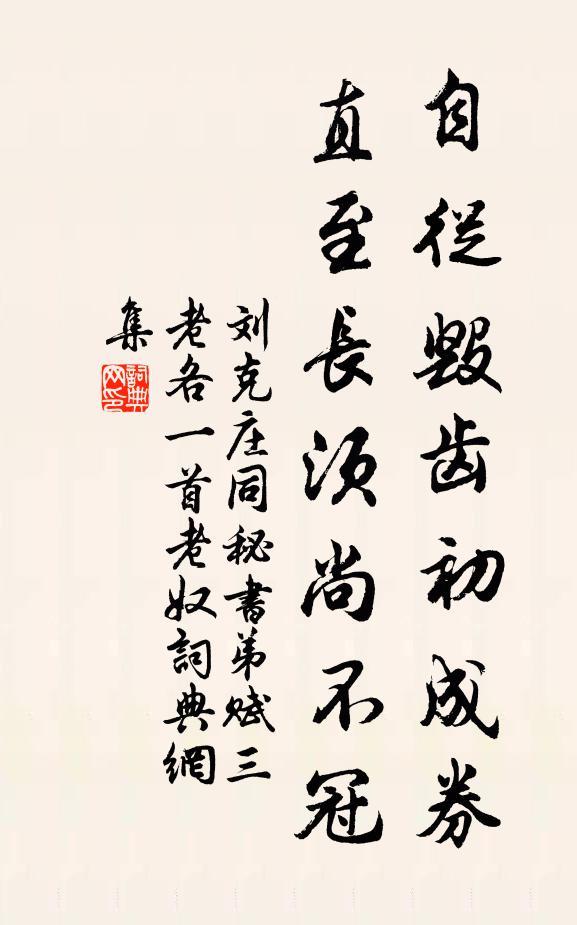 自從毀齒初成券
直至長須尚不冠
刘克庄同秘書弟赋三
老各一首老奴詞典網
集
詞典
网印